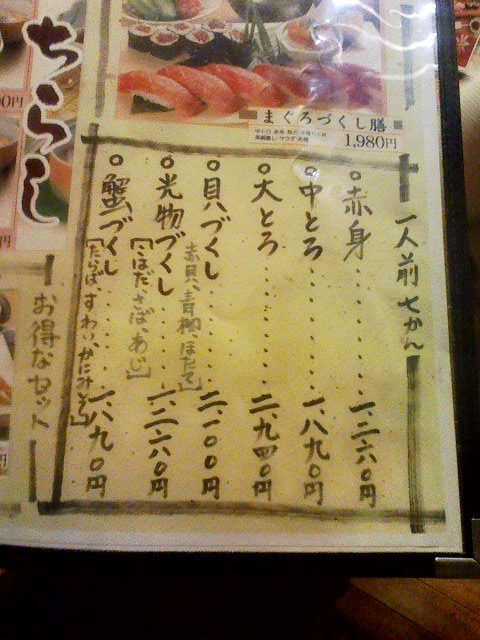 まぐろづくし膳
1,980円
一人前 七かん
○赤身・・・・・・一、二六〇円
○中とろ・・・・・・一、八九〇円
○大とろ・・・・・・二、九四〇円
○貝づくし・・・・・・二、一〇〇円
赤貝、青柳、ほたて]
○光物づくし・・・・・・一、二六〇円
[こはだ、さば、あじ]
○蟹づくし・・・・・・一、八九〇円
[たらば、ずわい、かにみそ]
お得なセット
ちらし